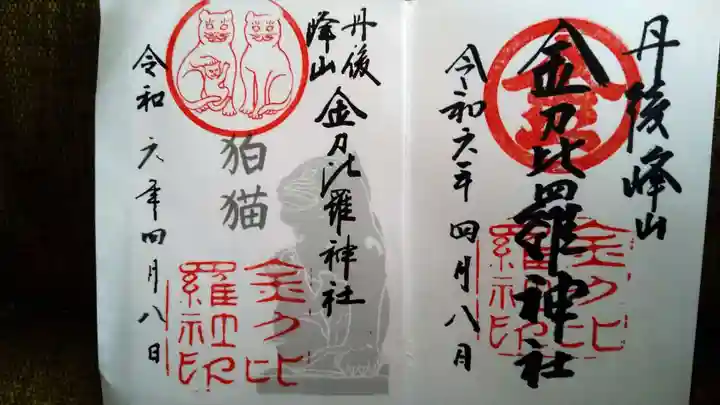 丹後峰山
金刀比羅神社
令和六年四月八日
金刀比
羅社印
丹後
峰山
金刀比羅神社
狛猫
令和六年四月八日
金刀比
羅社印